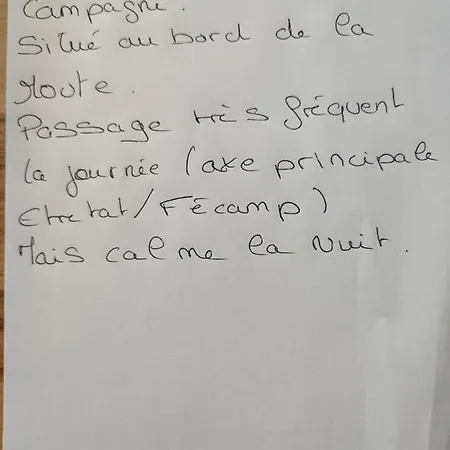 Campagne.
Situé au bord de la
route.
Passage très fréquent
la journée (axe principale
Etretat/Fécamp)
Mais calme la nuit.